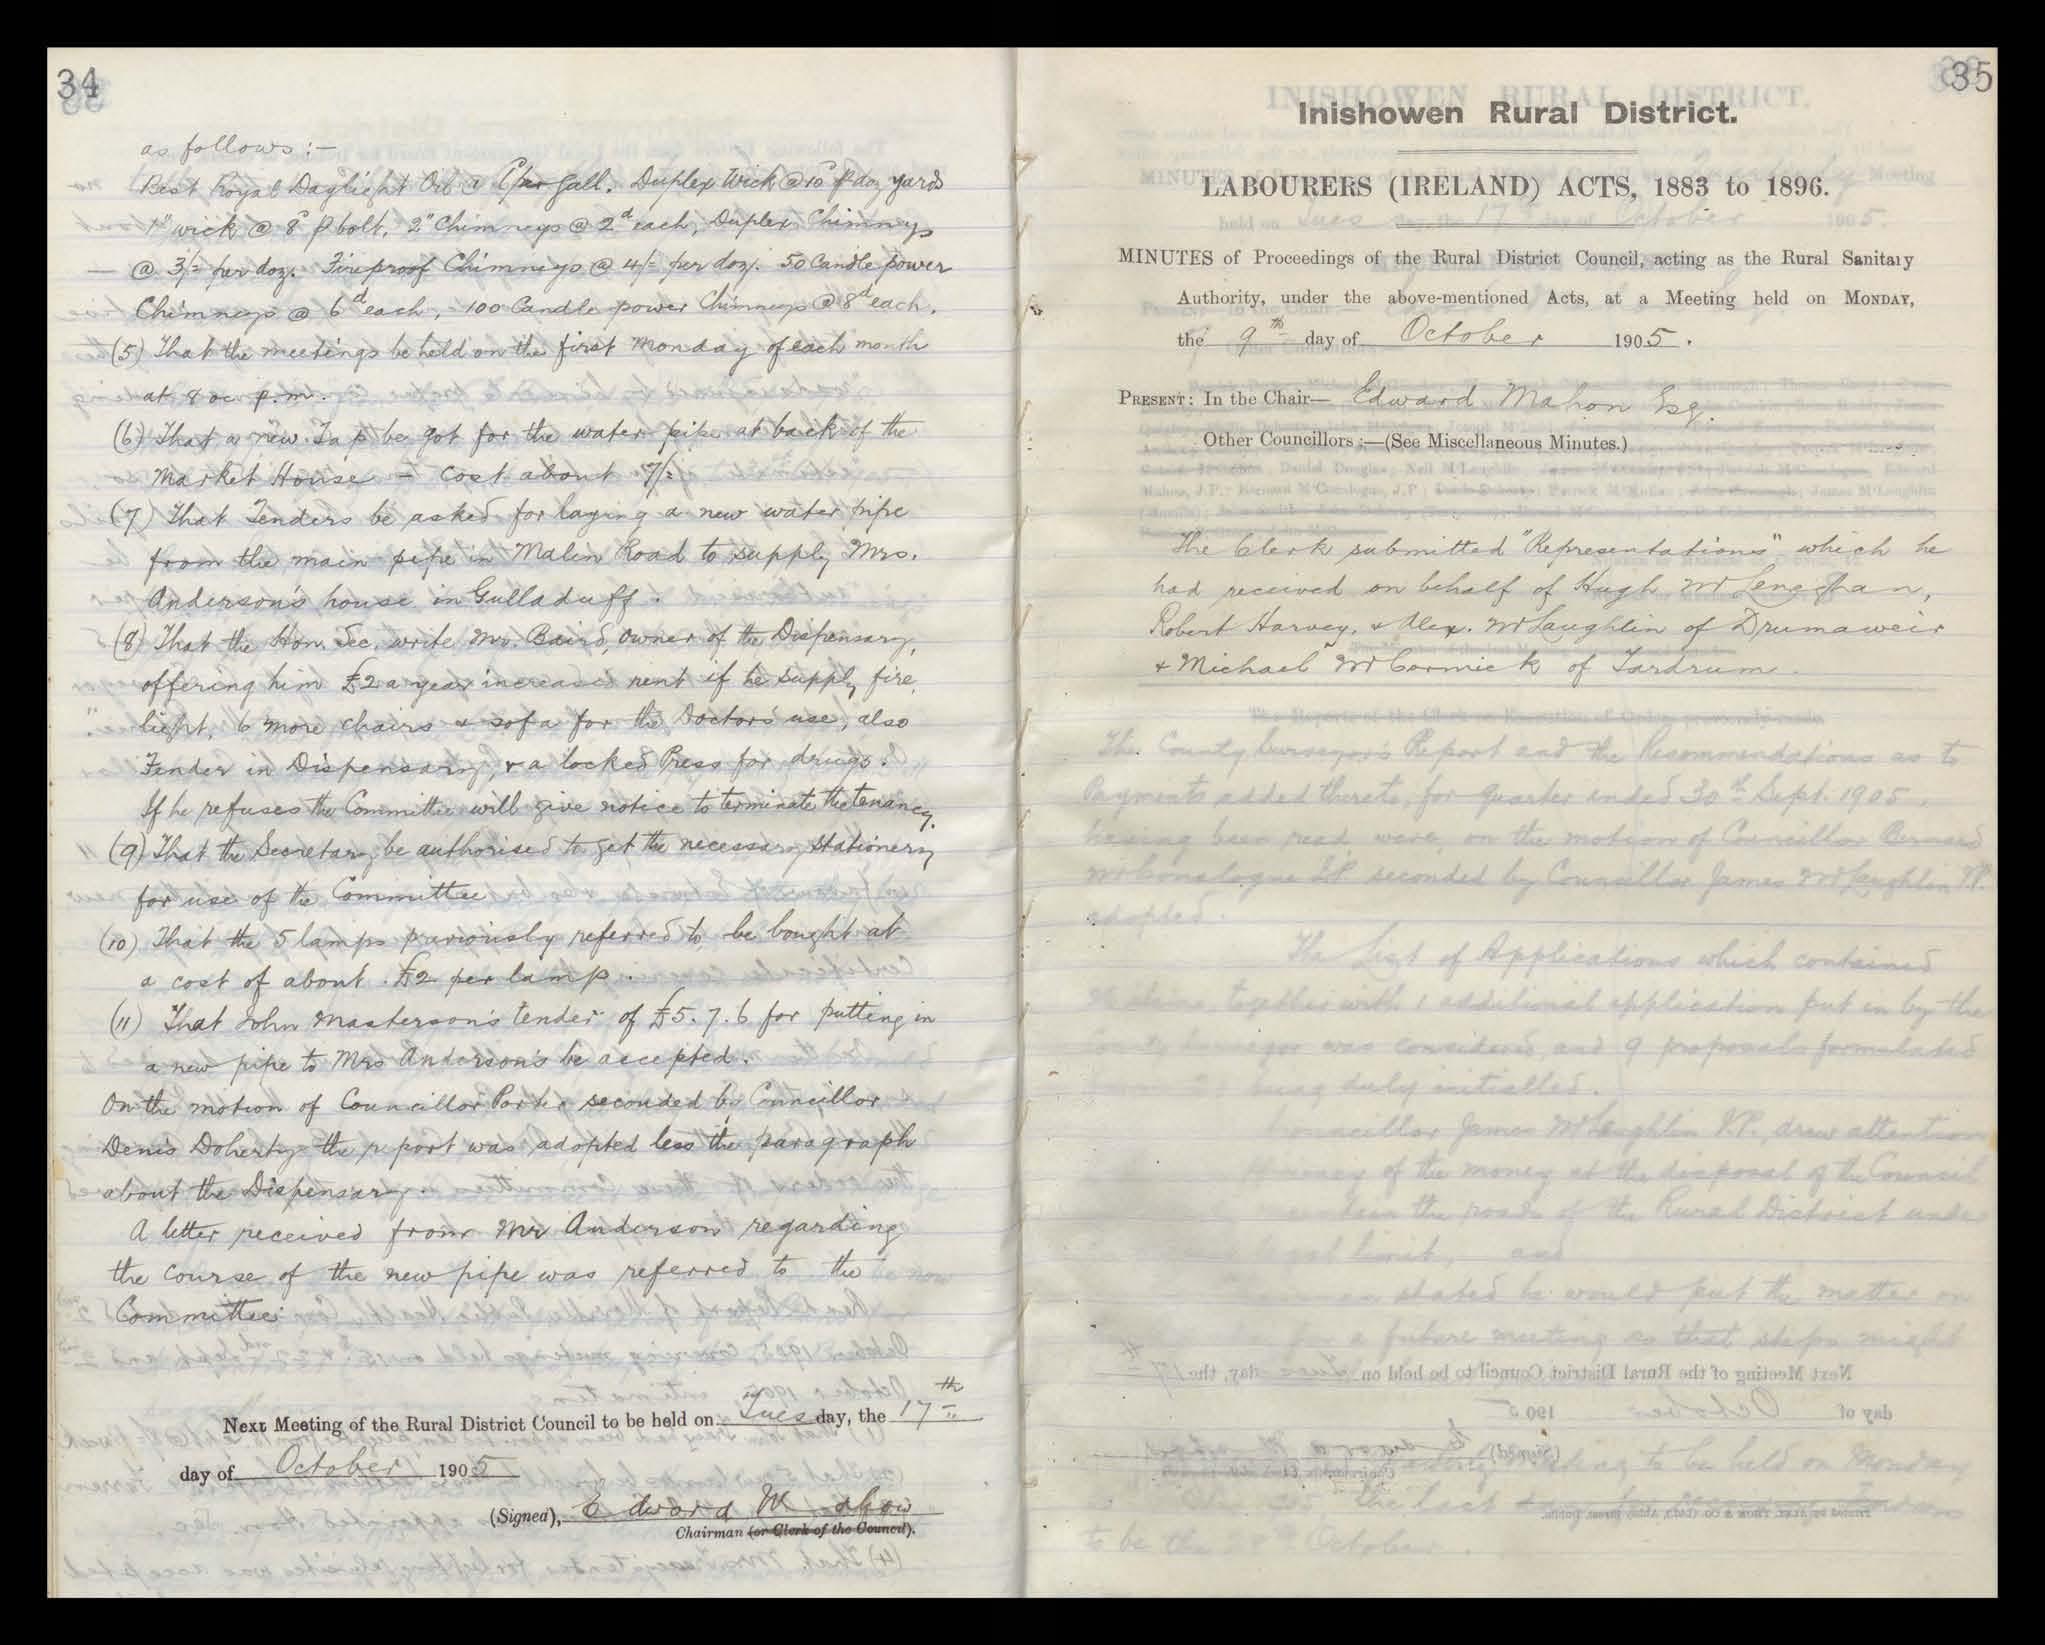 34
as follows :-
Best Royal Daylight Oil @ 6/ per Gall. Duplex Wick @ 10d p doz yards
1" wick @ 8d p bolt. 2" Chimneys @ 2d each, Duplex Chimneys
— @ 3/= per doz. Fireproof Chimneys @ 4/- per doz. 50 Candle power
Chimneys @ 6d each, 100 Candle power Chimneys @ 8d each.
(5) That the meetings be held on the first Monday of each month
at 8 oc p.m.
(6) That a new Tap be got for the water pipe at back of the
Market House – cost about 7/=
(7) That Tenders be asked for laying a new water pipe
from the main pipe in Malin Road to supply Mrs.
Anderson's house in Gulladuff.
(8) That the Hon. Sec. write Mr. Baird, owner of the Dispensary,
offering him £2 a year increased rent if he supply fire,
light, 6 more chairs & sofa for the Doctor's use, also
Fender in Dispensary, & a locked Press for drugs.
If he refuses the Committee will give notice to terminate the tenancy.
(9) That the Secretary be authorised to get the necessary stationery
for use of the Committee
(10) That the 5 lamps previously referred to be bought at
a cost of about £2 per lamp.
(11) That John Masterson's tender of £5. 7. 6 for putting in
a new pipe to Mrs Anderson's be accepted.
On the motion of Councillor Porter seconded by Councillor
Denis Doherty the report was adopted less the paragraph
about the Dispensary.
A letter received from Mr Anderson regarding
the course of the new pipe was referred to the
Committee
Next Meeting of the Rural District Council to be held on Tues day, the 17th
day of October 1905
(Signed), Edward Mahon
Chairman (or Clerk of the Council).
35
Inishowen Rural District.
LABOURERS (IRELAND) ACTS, 1883 to 1896.
MINUTES of Proceedings of the Rural District Council, acting as the Rural Sanitary
Authority, under the above-mentioned Acts, at a Meeting held on MONDAY,
the 9th day of October 1905.
PRESENT: In the Chair— Edward Mahon Esq.
Other Councillors :—(See Miscellaneous Minutes.)
The Clerk submitted "Representations" which he
had received on behalf of Hugh McLenaghan,
Robert Harvey, & Alex. McLaughlin of Drumaweir
& Michael McCormick of Tardrum.